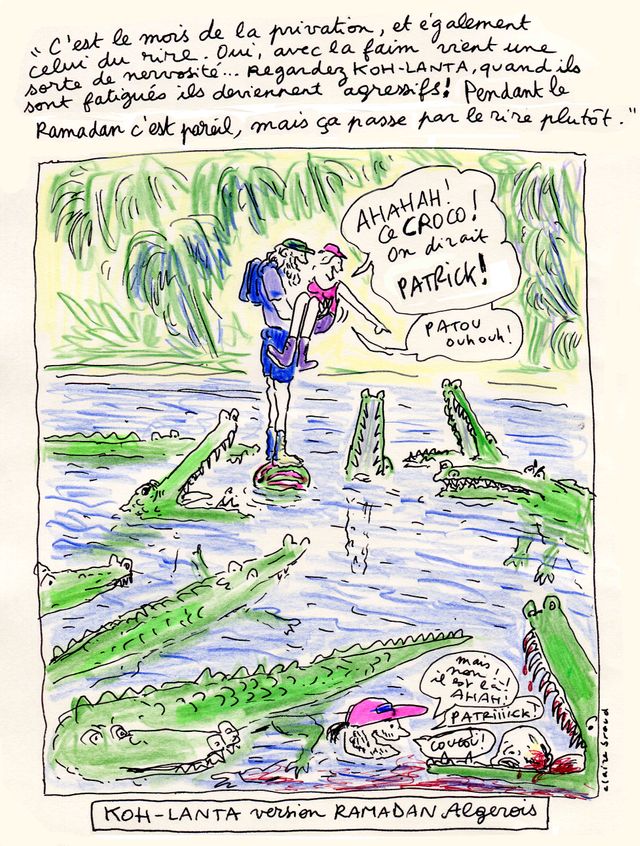 "C'est le mois de la privation, et également
celui du rire. Oui, avec la faim vient une
sorte de nervosité... Regardez KOH-LANTA, quand ils
sont fatigués ils deviennent agressifs! Pendant le
Ramadan c'est pareil, mais ça passe par le rire plutôt."
AHAHAH!
Ce CROCO!
On dirait
PATRICK!
PATOU
ouhouh!
mais!
non!
il est là!
AHAH!
PATRIIIICK!
COUCOU!
KOH-LANTA version RAMADAN Algerois